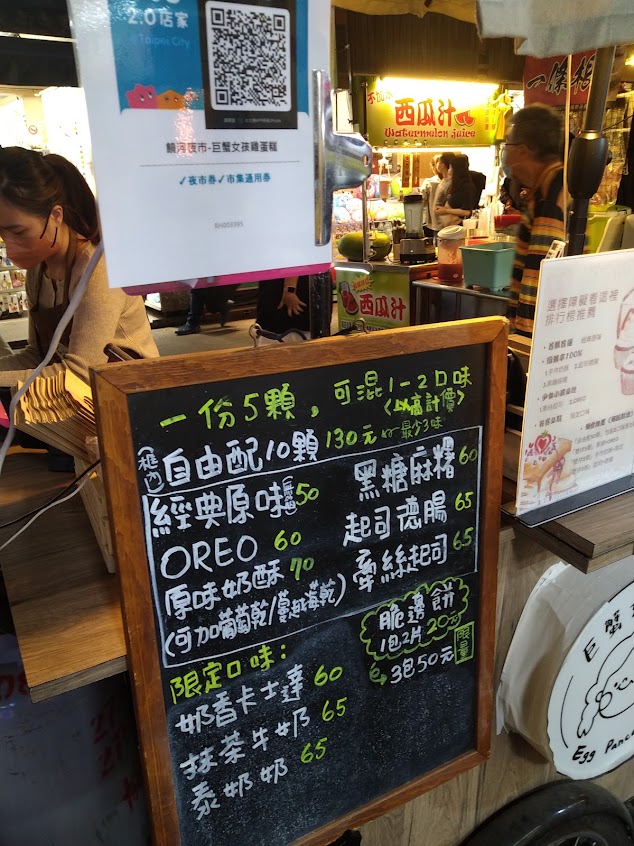 2.0店家
@Taipei City
饒河夜市-巨蟹女孩雞蛋糕
✓夜市券✓市集通用券
西瓜汁
Watermelon juice
西瓜汁
一份5顆，可混1-2口味
(以高計價)
自由配10顆130元
最少3味
經典原味 50
OREO 60
原味奶酥 70
(可加葡萄乾/蔓越莓乾)
黑糖麻糬 60
起司德腸 65
牽絲起司 65
脆邊餅
1包2片20元
3包50元
限量
限定口味：
奶香卡士達 60
抹茶牛奶 65
泰奶奶 65
選擇障礙看這裡
排行榜推薦
巨蟹
Egg Panc